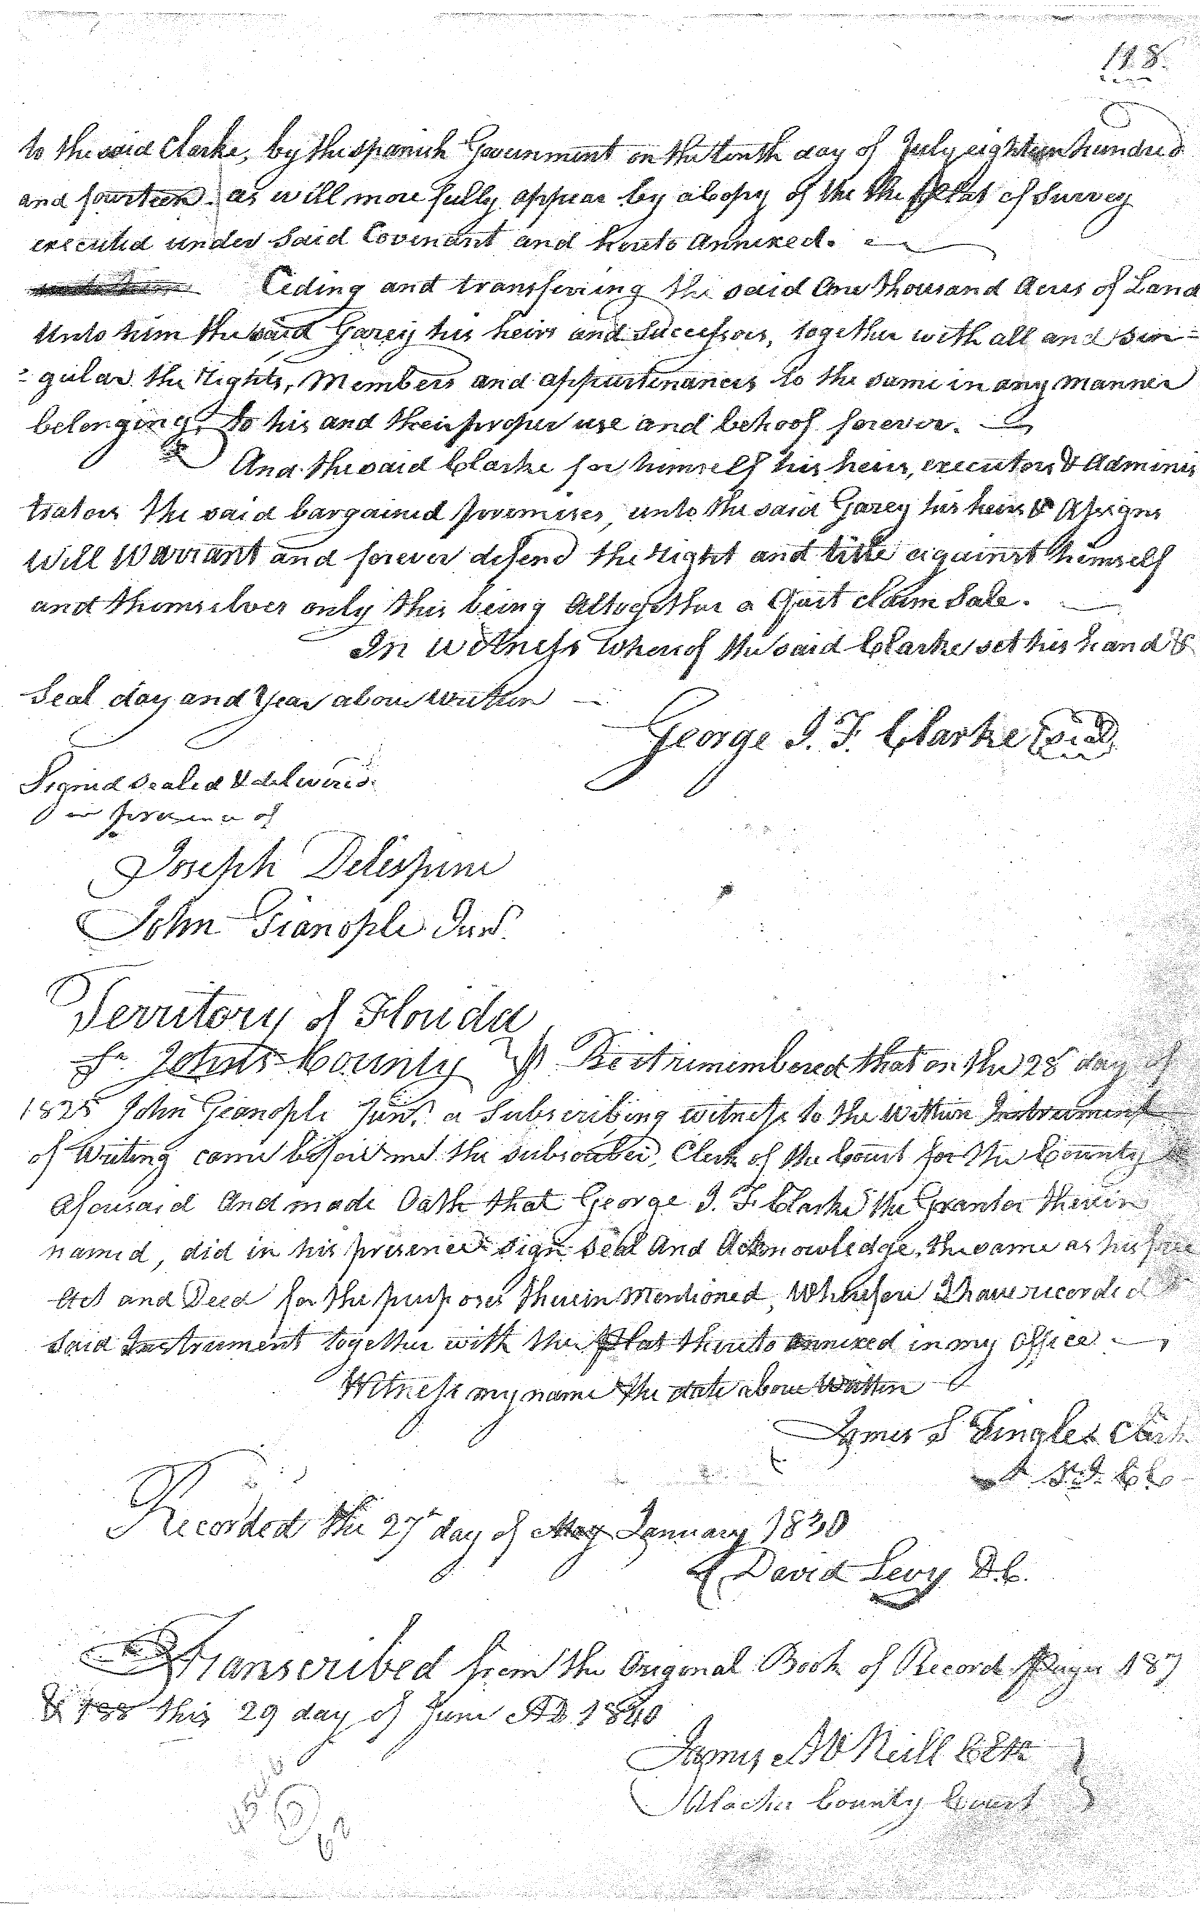 118.
to the said Clarke, by the spanish Government on the tenth day of July eighteen hundred
and fourteen. as will more fully appear by a Copy of the the Plat of Survey
executed under said Covenant and hereto annexed.
Ceding and transfering the said One thousand Acres of Land
Unto him the said Garey his heirs and Successors, together with all and sin=
=gular the Rights, Members and appurtenances to the same in any manner
belonging, to his and their proper use and behoof forever.
And the said Clarke for himself his heirs, executors & Adminis
trators the said bargained premises, unto the said Garey his heirs & Assigns
Will Warrant and forever defend the Right and title against himself
and themselves only this being Altogether a Quit claim Sale.
In witness whereof the said Clarke set his hand &
Seal day and Year above written
George J. F. Clarke Seal
Signed sealed & delivered
in presence of
Joseph Delespine
John Gianople Junr.
Territory of Florida
St. Johns County Be it remembered that on the 28 day of
1825 John Gianople Junr. a Subscribing witness to the within Instrument
of Writing came before me the subscriber, Clerk of the Court for the County
Aforesaid And made Oath that George J. F. Clarke the Grantor therein
named, did in his presence sign seal And Acknowledge, the same as his free
Act and Deed for the purposes therein Mentioned, Wherefore I have recorded
said Instrument together with the Plat thereto annexed in my office
Witness my name the date above Written
James S Tingles Clerk
S. J. C. C.
Recorded the 27th day of May January 1830
David Levy D.C.
Transcribed from the Original Book of Record Pages 187
& 188 this 29 day of June AD 1840
James A O Neill Clk
Alachua County Court